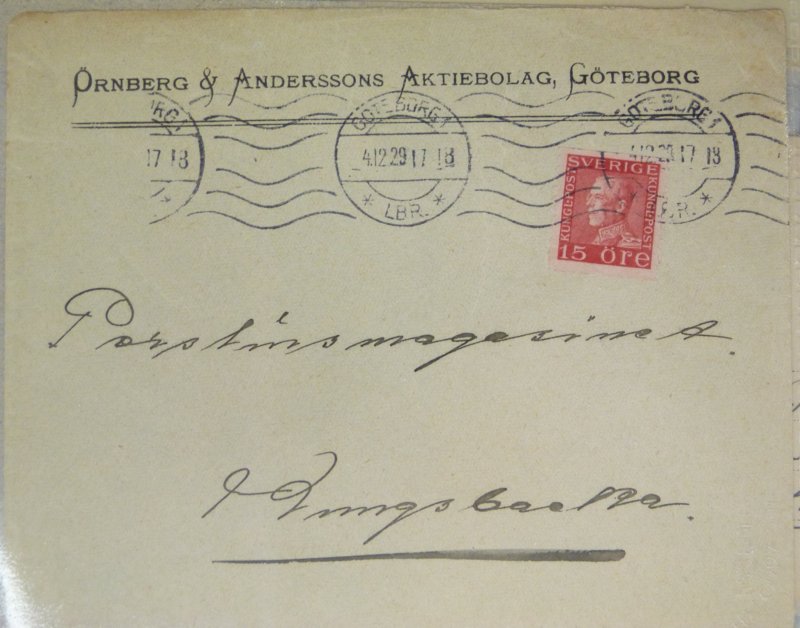 ÖRNBERG & ANDERSSONS AKTIEBOLAG, GÖTEBORG
GÖTEBORG 1
4.12.29 17 18
* LBR. *
17 18
4.12.29 17 18
SVERIGE
KUNGL·POST
KUNGL·POST
15 öre
Porslinsmagasinet.
Kungsbacka.